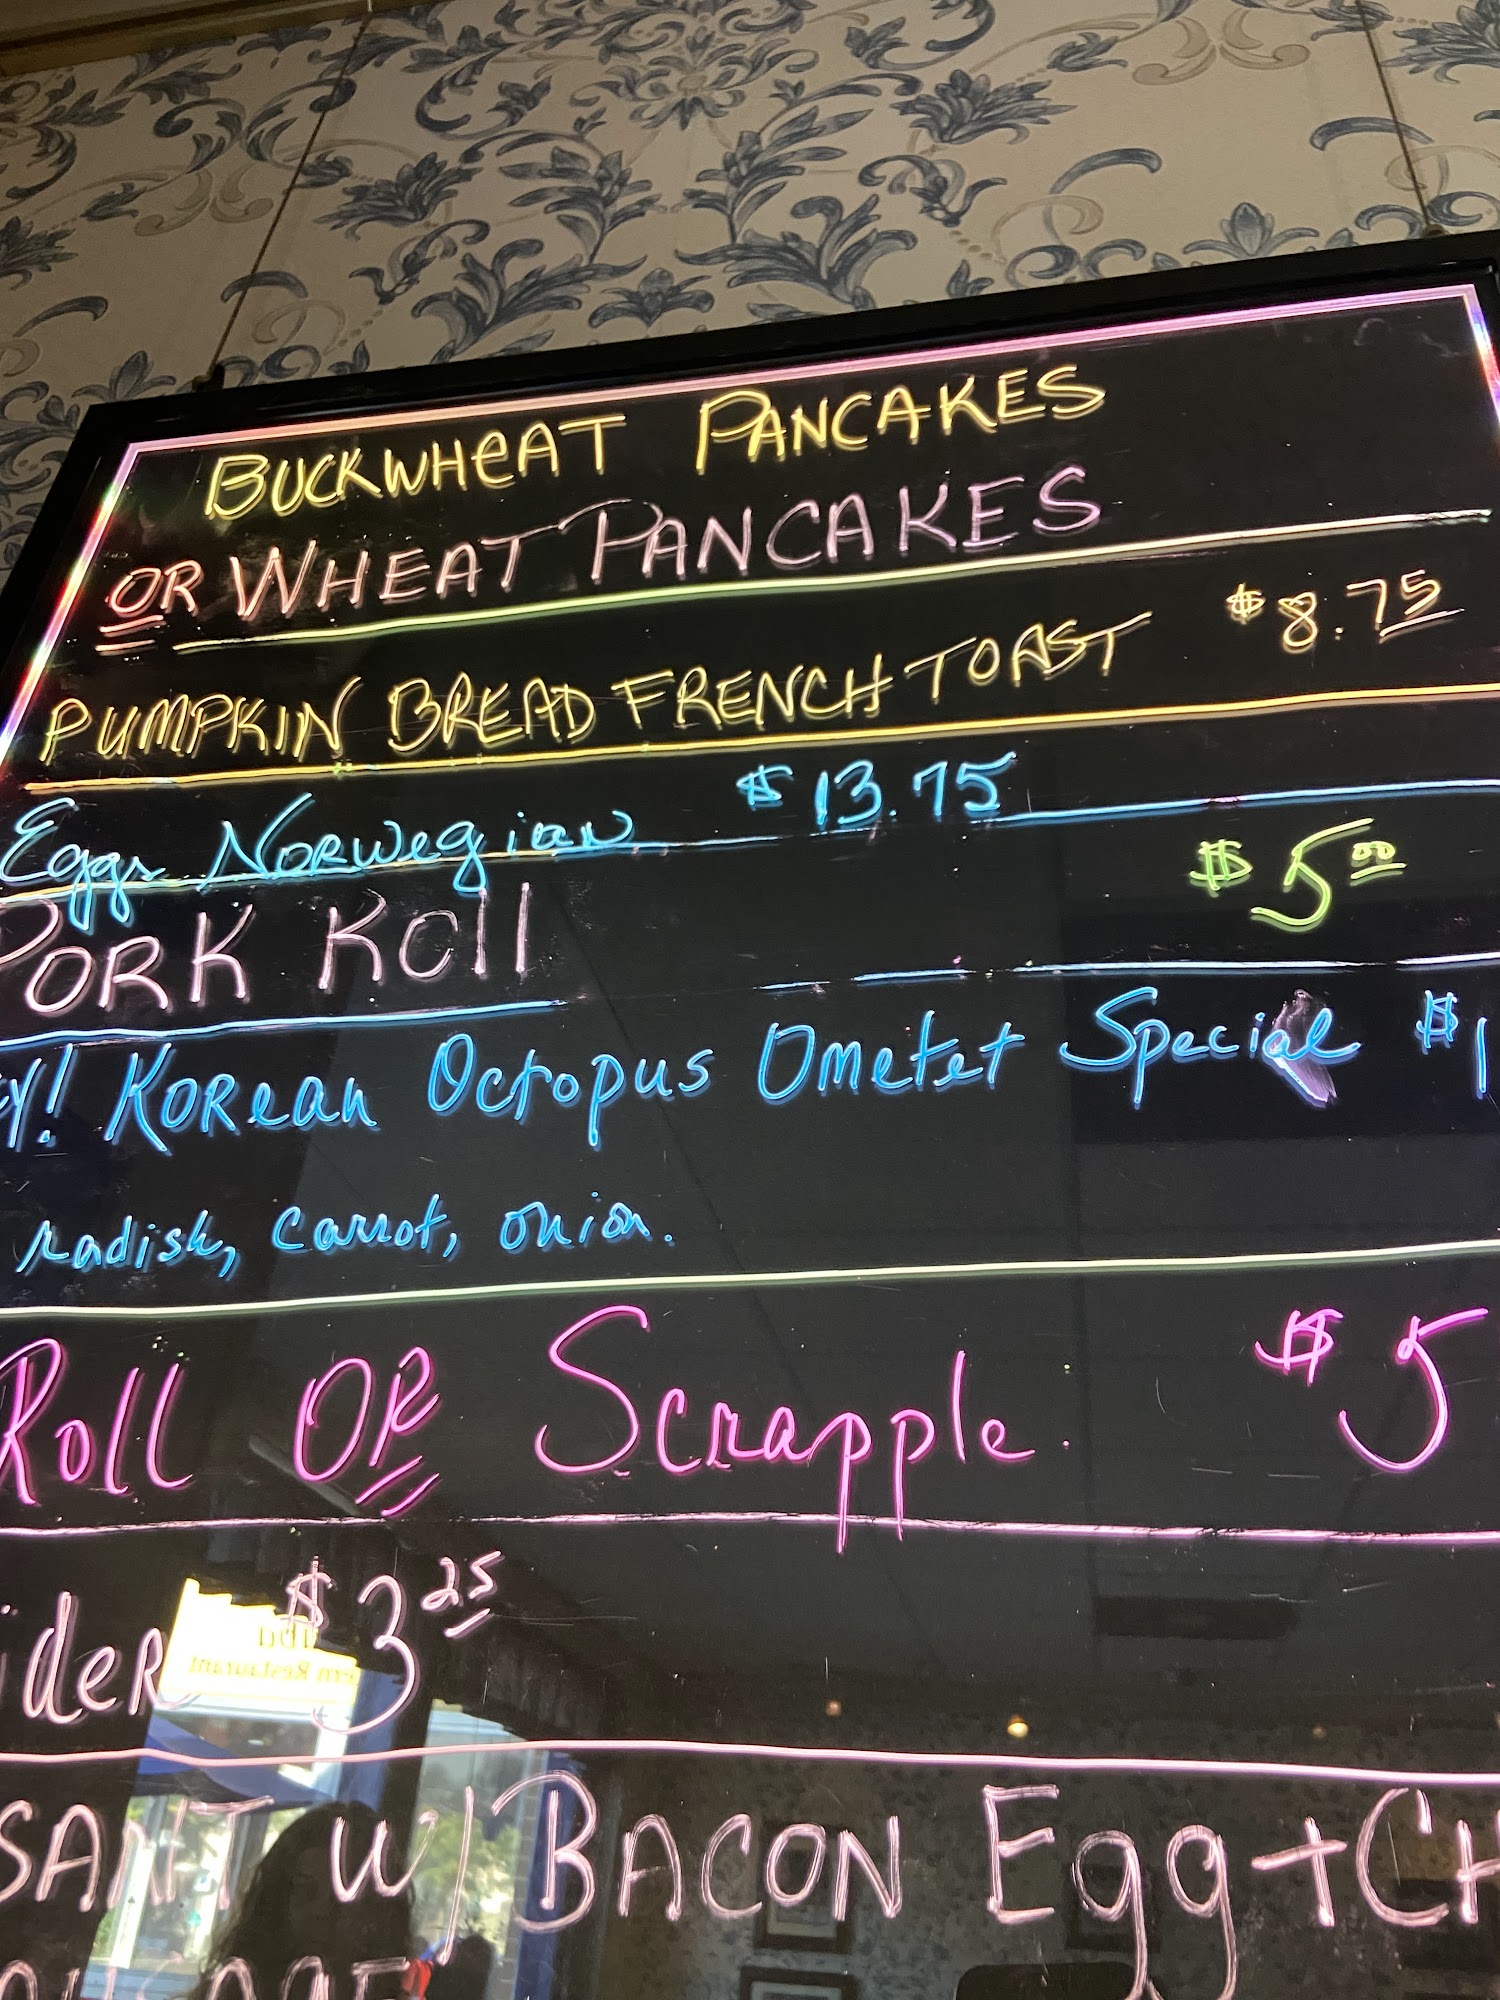 BUCKWHEAT PANCAKES
OR WHEAT PANCAKES
PUMPKIN BREAD FRENCH TOAST $8.75
Eggs Norwegian $13.75
PORK ROll $5.00
Y! Korean Octopus Omelet Special $1
radish, carrot, onion.
Roll OR Scrapple $5
ider $3.25
SANT w/ BACON Egg + CH